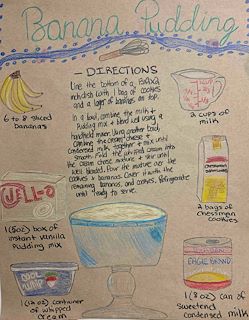 Banana Pudding
- DIRECTIONS -
Line the bottom of a
dish with 1 bag of cookies
and a layer of bananas on top.
In a bowl, combine the milk +
Pudding mix + blend well using a
handheld mixer. Using another bowl,
combine the cream cheese +
condensed milk together + mix until
smooth. Fold the whipped cream into
the cream cheese mixture + stir until
well blended. Pour the mixture over the
cookies + bananas. Cover it with the
remaining bananas, and cookies. Refrigerate
until ready to serve.
6 to 8 sliced
bananas
2 cups of
milk
JELL-O
1 (5 oz) box of
instant vanilla
Pudding mix
2 bags of
chessman
cookies
COOL
WHIP
1 (12 oz) container
of whipped
cream
EAGLE BRAND
1 (8 oz) can of
sweetened
condensed milk